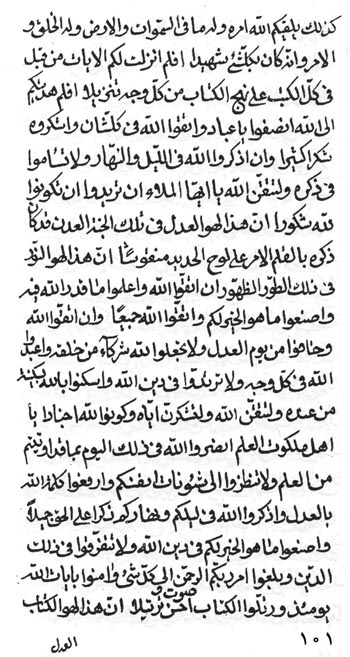 كذلك يلقيكم الله امره وله ما فى السموات والارض وله الخلق و
الامر وانه كان بكلشئ شهيدا افلم انزلت لكم الايات من قبل
فى كل الكتب على نهج الكتاب من كل وجه تنزيلا افلم هديتكم
الى الله انصفوا يا عباد واتقوا الله فى كلشان واذكروه
ذكرا كثيرا وان اذكروا الله فى الليل والنهار ولا تساموا
فى ذكره ولتتقن الله يا ايها الملاء ان تريدوا ان تكونوا
لله شكورا ان هذا لهو العدل فى تلك الجنة العدن قد كان
ذكره بالقلم الامر على لوح الحديد منقوشا ان هذا لهو النور
فى ذلك الطور الظهور ان اتقوا الله واعلموا ما قدر الله فيه
واصنعوا ما هو الخير لكم واتقوا الله جميعا وان اتقوا الله
وخافوا من يوم العدل ولا تجعلوا لله شركاء من خلقه واعبدوا
الله فى كل وجه ولا ترتدوا فى دين الله واسكنوا بالله بسكينة
من عنده ولتتقن الله ولتشكرن اياه وكونوا لله احبارا يا
اهل ملكوت العلم انصروا الله فى ذلك اليوم بما قد اوتيتم
من العلم ولا تنظروا الى شئونات انفسكم وارفعوا كلمة الله
بالعدل واذكروا الله فى ليلكم ونهاركم ذكرا على الحق جميلا
واصنعوا ما هو الخير لكم فى دين الله ولا تتفرقوا فى ذلك
الدين وبلغوا امر ربكم الرحمن الى كل شئ وامنوا بايات الله
يومئذ ورتلوا الكتاب احسن صوت و ترتيلا ان هذا لهو الكتاب
العدل
١٠١